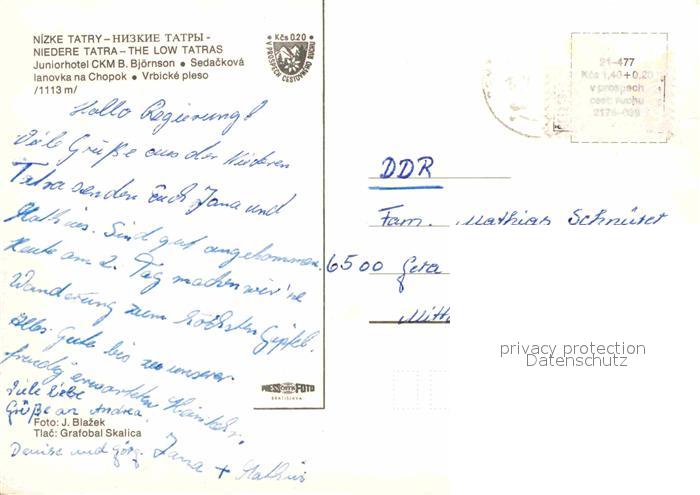 NÍZKE TATRY – НИЗКИЕ ТАТРЫ -
NIEDERE TATRA – THE LOW TATRAS
Juniorhotel CKM B. Björnson • Sedačková
lanovka na Chopok • Vrbické pleso
/1113 m/
Kčs 0.20
V PROSPECH CESTOVNÉHO RUCHU
Hallo Regierung!
Viele Grüße aus der Niederen
Tatra senden Euch Jana und
Mathias. Sind gut angekommen.
Heute am 2. Tag machen wir 'ne
Wanderung zum höchsten Gipfel.
Alles Gute bis zu unserer
freudig erwarteten Heimkehr.
Jana + Mathias
Viele liebe
Grüße an Andrea,
Denise und Görg.
Foto: J. Blažek
Tlač: Grafobal Skalica
PRESSFOTO
BRATISLAVA
21-477
Kčs 1,40+0,20
v prospech
cest. ruchu
DDR
Fam. Mathias Schnüter
6500 Gera
privacy protection
Datenschutz